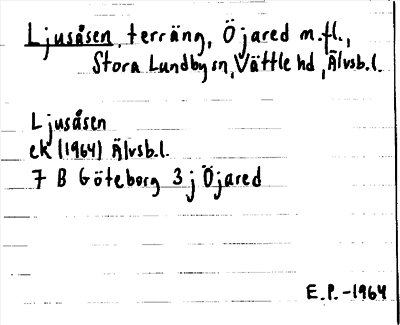 Ljusåsen, terräng, Öjared m.fl.,
Stora Lundby sn, Vättle hd, Älvsb.l.
Ljusåsen
ek (1964) Älvsb.l.
7 B Göteborg 3 j Öjared
E.P.-1964